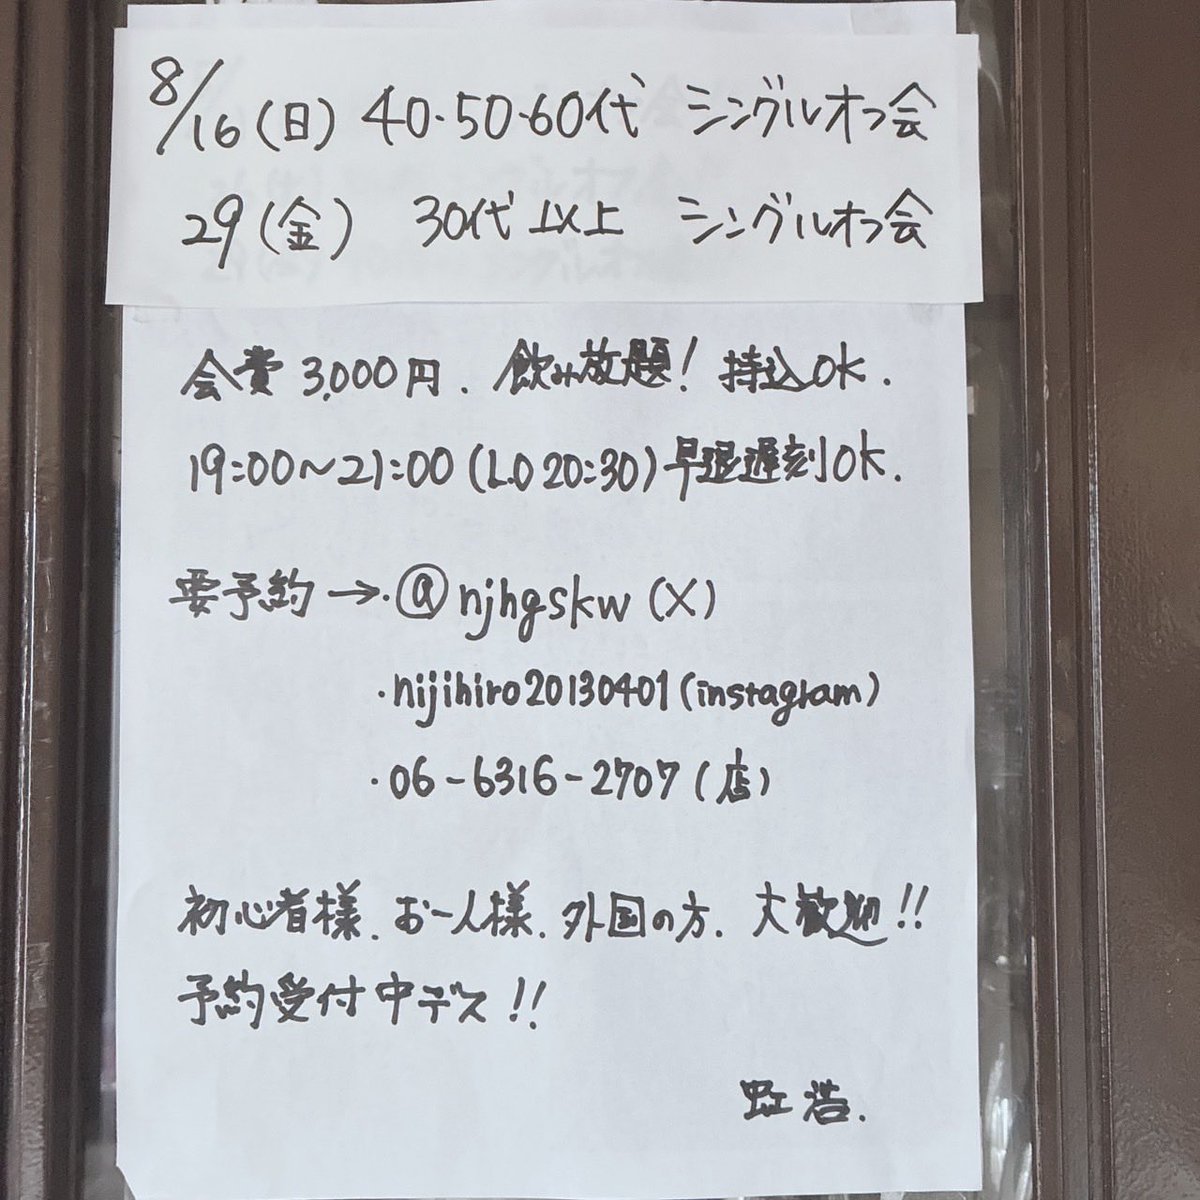 8/16(日) 40・50・60代 シングルオフ会
29(金) 30代以上 シングルオフ会
会費 3,000円. 飲み放題! 持込OK.
19:00〜21:00(L.O 20:30)早退遅刻OK.
要予約→・@njhgskw(X)
・nijihiro20130401(instagram)
・06-6316-2707(店)
初心者様.お一人様.外国の方.大歓迎!!
予約受付中デス!!
虹浩.